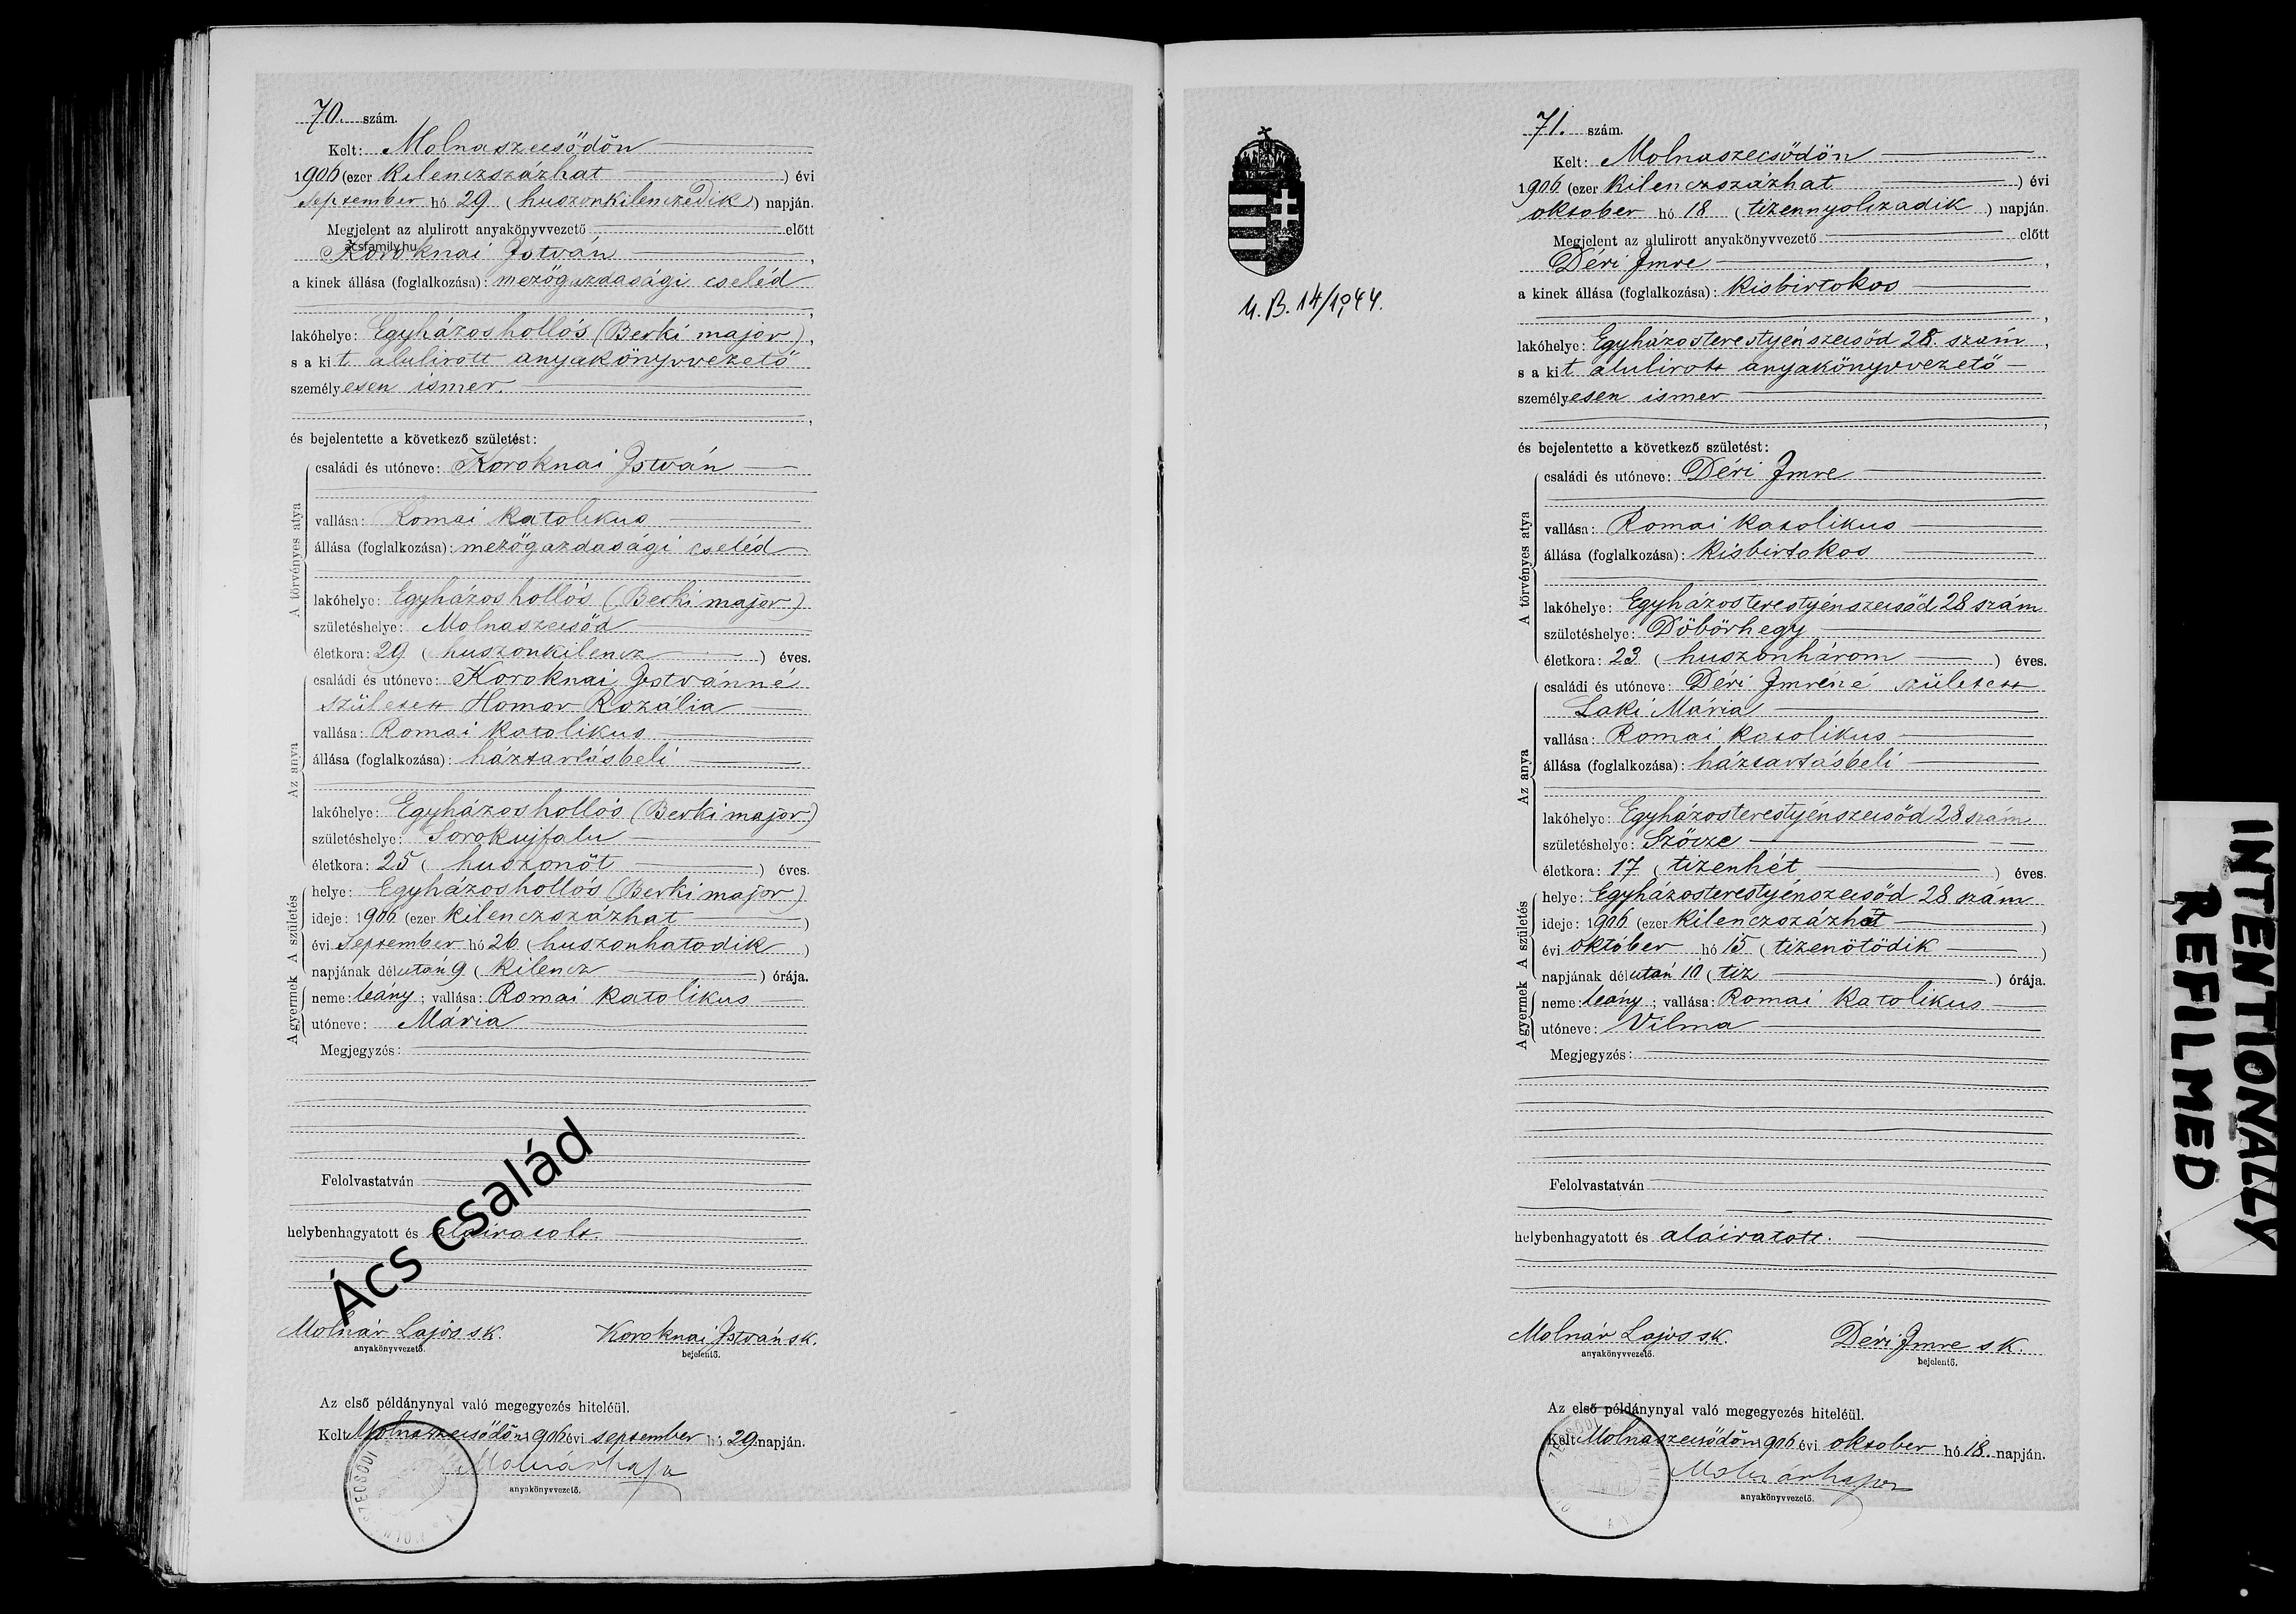 70. szám.
Kelt: Molnaszecsődön
1906 (ezer kilenczszázhat) évi
september hó 29 (huszonkilenczedik) napján.
Megjelent az alulirott anyakönyvvezető előtt
acsfamily.hu
Koroknai István,
a kinek állása (foglalkozása): mezőgazdasági cseléd
lakóhelye: Egyházashollós (Berki major),
s a kit alulirott anyakönyvvezető
személyesen ismer.
és bejelentette a következő születést:
A törvényes atya
családi és utóneve: Koroknai István
vallása: Romai katolikus
állása (foglalkozása): mezőgazdasági cseléd
lakóhelye: Egyházashollós (Berki major)
születéshelye: Molnaszecsőd
életkora: 29 (huszonkilencz) éves.
Az anya
családi és utóneve: Koroknai Istvánné
született Homor Rozália
vallása: Romai katolikus
állása (foglalkozása): háztartásbeli
lakóhelye: Egyházashollós (Berki major)
születéshelye: Sorokujfalu
életkora: 25 (huszonöt) éves.
A gyermek A születés
helye: Egyházashollós (Berki major)
ideje: 1906 (ezer kilenczszázhat)
évi september hó 26 (huszonhatodik)
napjának délután 9 (kilencz) órája.
neme: leány; vallása: Romai katolikus
utóneve: Mária
Megjegyzés:
Felolvastatván
helybenhagyatott és aláiratott.
Ács család
Molnár Lajos sk. Koroknai István sk.
anyakönyvvezető. bejelentő.
Az első példánynyal való megegyezés hiteléül.
Kelt Molnaszecsődön 1906 évi september hó 29 napján.
Molnár Lajos
anyakönyvvezető.
M.B. 14/1944.
71. szám.
Kelt: Molnaszecsődön
1906 (ezer kilenczszázhat) évi
oktober hó 18 (tizennyolczadik) napján.
Megjelent az alulirott anyakönyvvezető előtt
Déri Imre,
a kinek állása (foglalkozása): kisbirtokos
lakóhelye: Egyházasterestyénszecsőd 28. szám,
s a kit alulirott anyakönyvvezető
személyesen ismer
és bejelentette a következő születést:
A törvényes atya
családi és utóneve: Déri Imre
vallása: Romai katolikus
állása (foglalkozása): kisbirtokos
lakóhelye: Egyházasterestyénszecsőd 28 szám
születéshelye: Döbörhegy
életkora: 23 (huszonhárom) éves.
Az anya
családi és utóneve: Déri Imréné született
Laki Mária
vallása: Romai katolikus
állása (foglalkozása): háztartásbeli
lakóhelye: Egyházasterestyénszecsőd 28 szám
születéshelye: Szőcze
életkora: 17 (tizenhét) éves.
A gyermek A születés
helye: Egyházasterestyénszecsőd 28 szám
ideje: 1906 (ezer kilenczszázhat)
évi október hó 15 (tizenötödik)
napjának délután 10 (tiz) órája.
neme: leány; vallása: Romai katolikus
utóneve: Vilma
Megjegyzés:
Felolvastatván
helybenhagyatott és aláiratott.
Molnár Lajos sk. Déri Imre sk.
anyakönyvvezető. bejelentő.
Az első példánynyal való megegyezés hiteléül.
Kelt Molnaszecsődön 1906 évi oktober hó 18 napján.
Molnár Lajos
anyakönyvvezető.
INTENTIONALLY
REFILMED